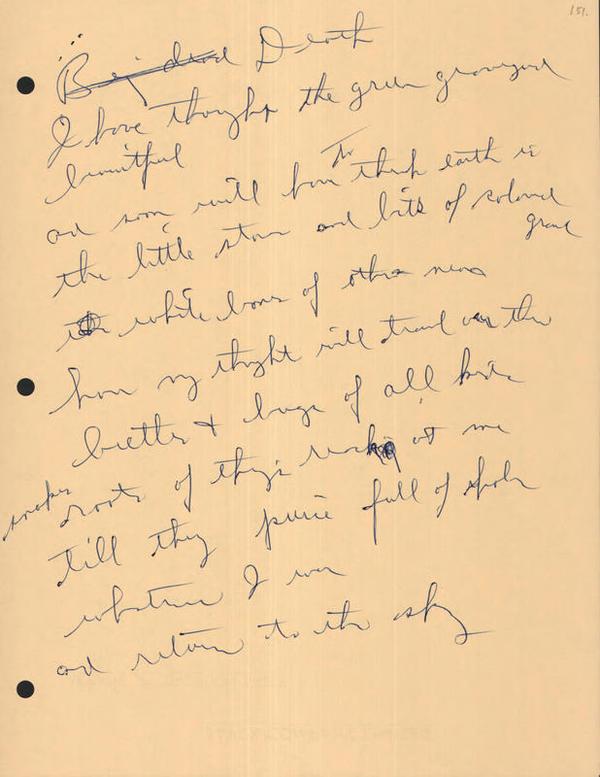 151.
Being dead Death
I have thought the green graveyard
beautiful
and soon will have The earth in
the little stones and bits of colored
gravel
white bones of other men
how my thought will travel over them
beetles & bugs of all kinds
snakes roots of things reaching at me
till they full of holes
whatever I was
and return to the sky